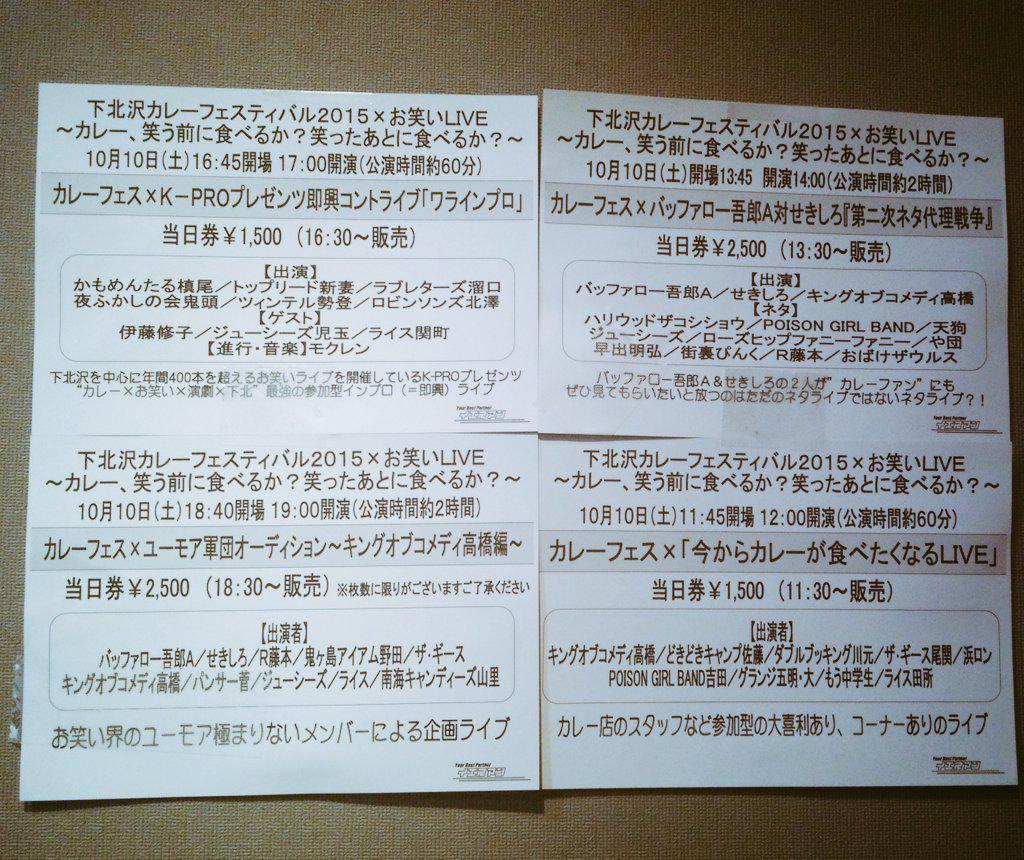 下北沢カレーフェスティバル2015×お笑いLIVE
～カレー、笑う前に食べるか？笑ったあとに食べるか？～
10月10日(土)16:45開場 17:00開演(公演時間約60分)
カレーフェス×K－PROプレゼンツ即興コントライブ「ワラインプロ」
当日券￥1,500 (16:30～販売)
【出演】
かもめんたる槙尾／トップリード新妻／ラブレターズ溜口
夜ふかしの会鬼頭／ツィンテル勢登／ロビンソンズ北澤
【ゲスト】
伊藤修子／ジューシーズ児玉／ライス関町
【進行・音楽】モクレン
下北沢を中心に年間400本を超えるお笑いライブを開催しているK-PROプレゼンツ
"カレー×お笑い×演劇×下北" 最強の参加型インプロ（＝即興）ライブ
Your Best Partner
イエスマン
下北沢カレーフェスティバル2015×お笑いLIVE
～カレー、笑う前に食べるか？笑ったあとに食べるか？～
10月10日(土)開場13:45 開演14:00(公演時間約2時間)
カレーフェス×バッファロー吾郎A対せきしろ『第二次ネタ代理戦争』
当日券￥2,500 (13:30～販売)
【出演】
バッファロー吾郎A／せきしろ／キングオブコメディ高橋
【ネタ】
ハリウッドザコシショウ／POISON GIRL BAND／天狗
ジューシーズ／ローズヒップファニーファニー／や団
早出明弘／街裏ぴんく／R藤本／おばけザウルス
バッファロー吾郎A＆せきしろの2人が"カレーファン"にも
ぜひ見てもらいたいと放つのはただのネタライブではないネタライブ？！
Your Best Partner
イエスマン
下北沢カレーフェスティバル2015×お笑いLIVE
～カレー、笑う前に食べるか？笑ったあとに食べるか？～
10月10日(土)18:40開場 19:00開演(公演時間約2時間)
カレーフェス×ユーモア軍団オーディション～キングオブコメディ高橋編～
当日券￥2,500 (18:30～販売) ※枚数に限りがございますご了承ください
【出演者】
バッファロー吾郎A／せきしろ／R藤本／鬼ヶ島アイアム野田／ザ・ギース
キングオブコメディ高橋／パンサー菅／ジューシーズ／ライス／南海キャンディーズ山里
お笑い界のユーモア極まりないメンバーによる企画ライブ
Your Best Partner
イエスマン
下北沢カレーフェスティバル2015×お笑いLIVE
～カレー、笑う前に食べるか？笑ったあとに食べるか？～
10月10日(土)11:45開場 12:00開演(公演時間約60分)
カレーフェス×「今からカレーが食べたくなるLIVE」
当日券￥1,500 (11:30～販売)
【出演者】
キングオブコメディ高橋／どきどきキャンプ佐藤／ダブルブッキング川元／ザ・ギース尾関／浜ロン
POISON GIRL BAND吉田／グランジ五明・大／もう中学生／ライス田所
カレー店のスタッフなど参加型の大喜利あり、コーナーありのライブ
Your Best Partner
イエスマン